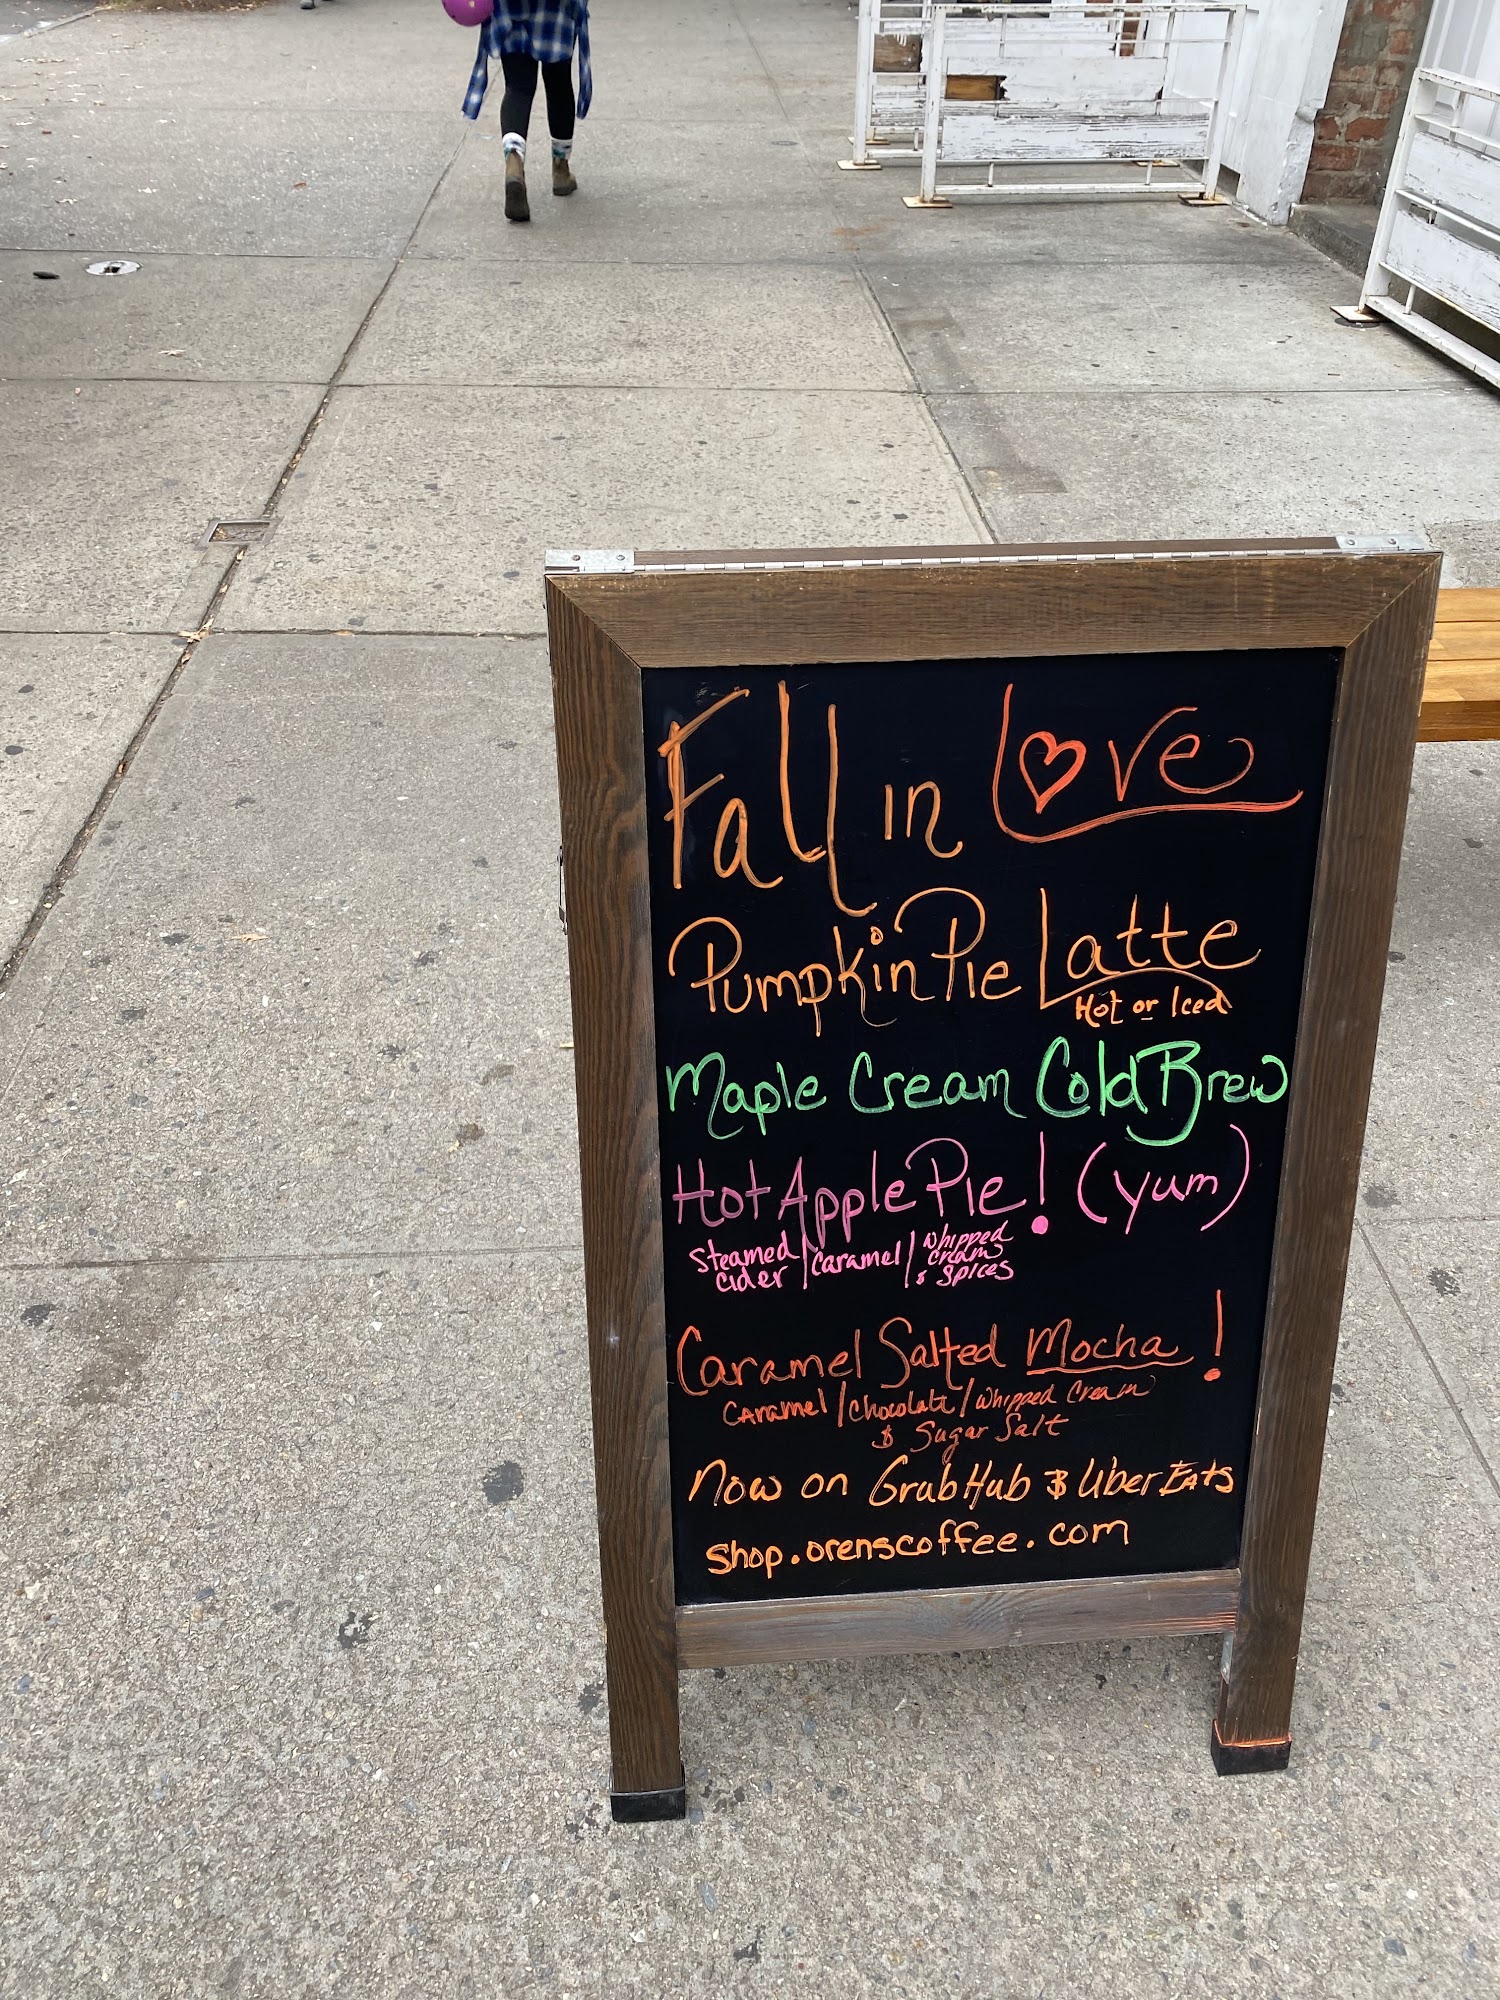 Fall in Love
Pumpkin Pie Latte
Hot or Iced
Maple Cream Cold Brew
Hot Apple Pie! (yum)
Steamed cider / caramel / whipped cream & spices
Caramel Salted Mocha!
Caramel / Chocolate / Whipped Cream
& Sugar Salt
Now on GrubHub & Uber Eats
shop.orenscoffee.com